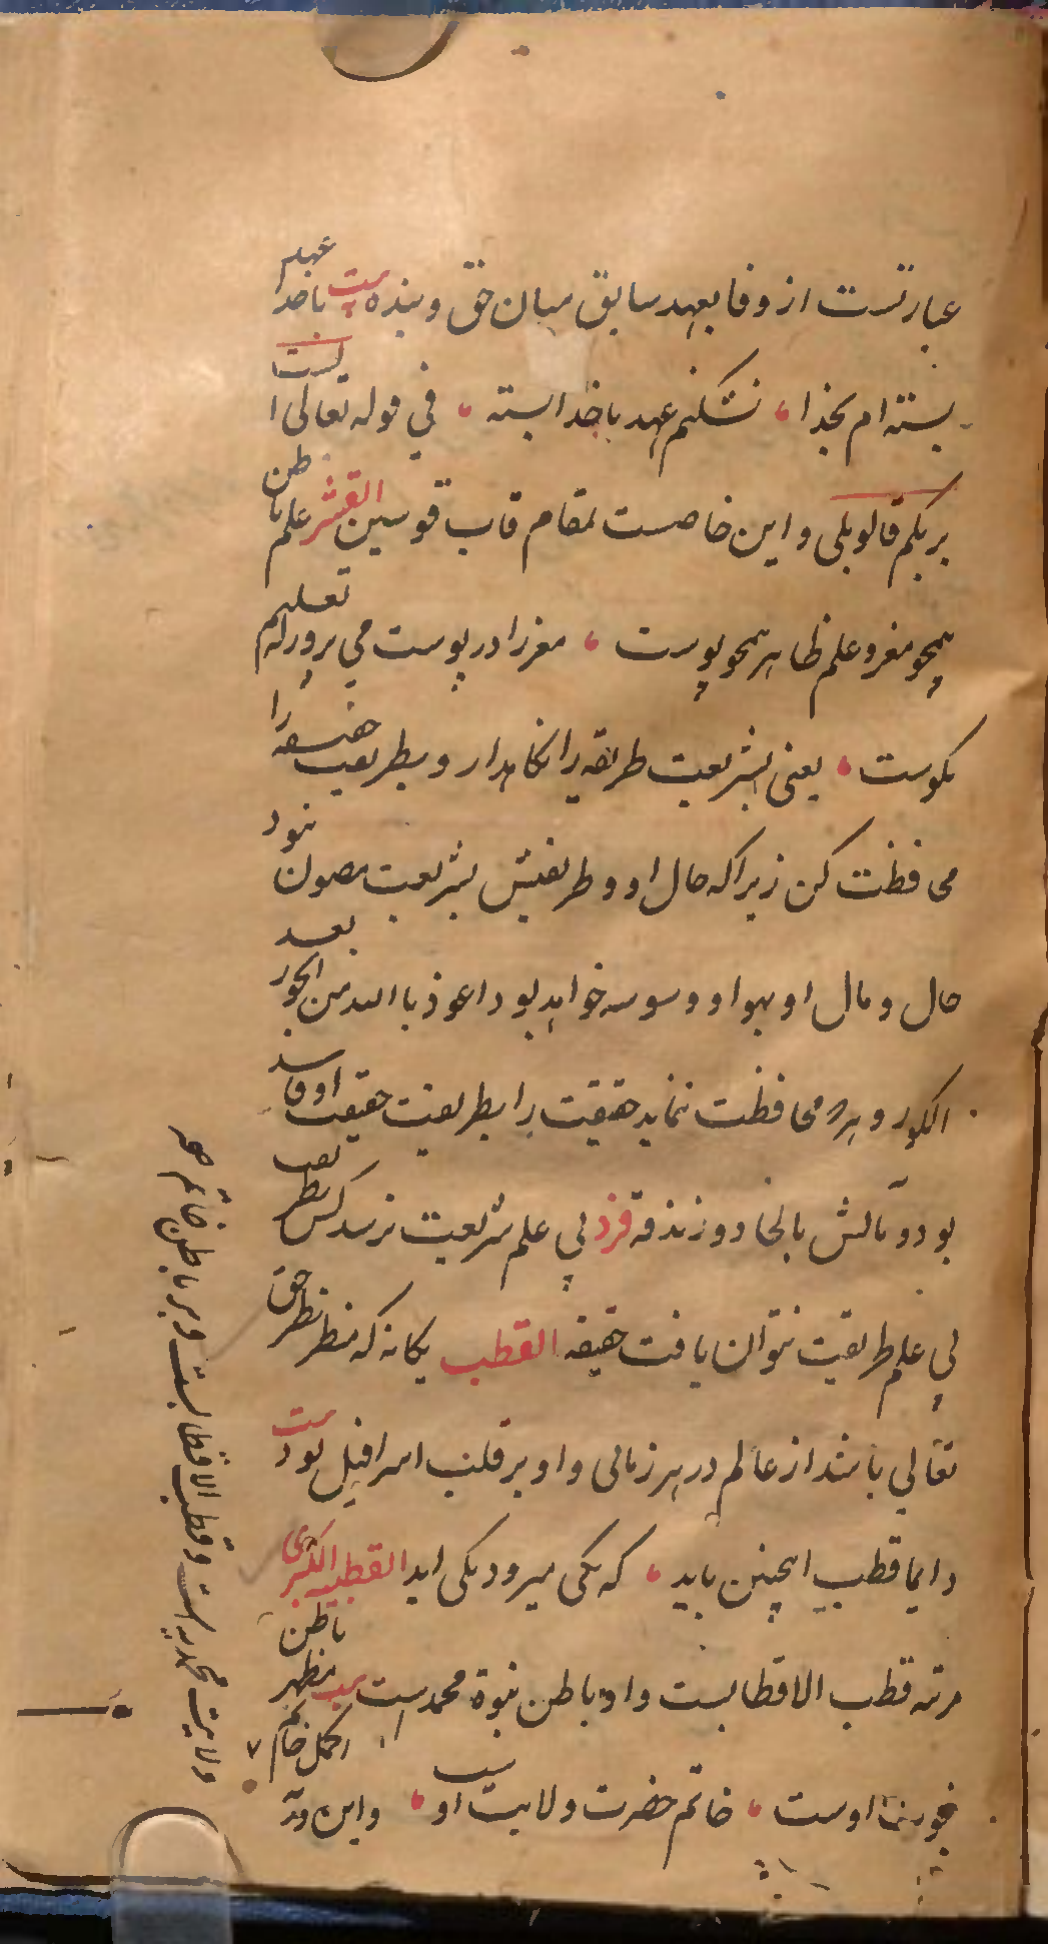 عبارتست از وفا بعهد سابق میان حق و بنده بیت عهد با خدا
بسته ام بخدا نشکنم عهد با خدا بسته في قوله تعالى الست
بربکم قالو بلی و این خاصست بمقام قاب قوسین القشر علم باطن
همچو مغز و علم ظاهر همچو پوست مغز را در پوست می پرور که تعلیم
نکوست یعنی بشریعت طریقه را نگاهدار و بطریقت حقیقه را
محافظت کن زیرا که حال او و طریقتش بشریعت مصون نبود
حال و مال او بهوا و وسوسه خواهد بود اعوذ باالله من الحور بعد
الکور و هر که محافظت ننماید حقیقت را بطریقت حقیقت او فاسد
بود و مآلش بالحاد و زندقه فرد بی علم شریعت نرسد کس بطریقت
بی علم طریقت نتوان یافت حقیقه القطب یگانه که منظر نظر حق
تعالی باشد از عالم در هر زمانی و او بر قلب اسرافیل بود بیت
دایما قطب اینچنین باید که یکی میرود یکی اید القطبیه الکبری
مرتبه قطب الاقطابست و او باطن نبوة محمد است بیت مظهر باطن
نبوت اوست خاتم حضرت ولایت اوست و این مرتبه اکمل خاتم
ولایت محمدیه است و قطب الاقطابست و بر باطن خاتم